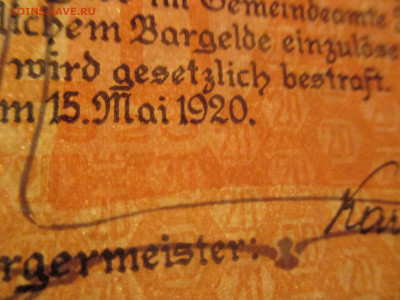 COINSS.AVE.RU
im Gemeindeamte
lichem Bargelde einzulöse
wird gesetzlich bestraft.
m 15. Mai 1920.
Kar
rgermeister: